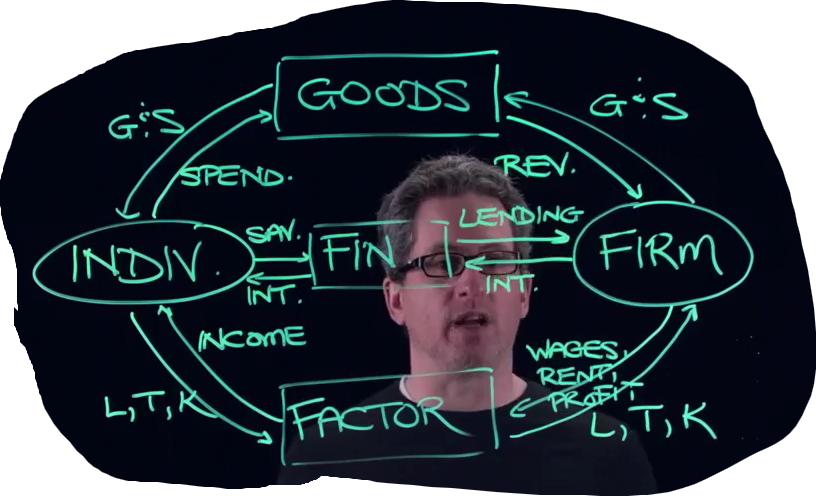 GOODS
G&S
G&S
SPEND.
REV.
LENDING
SAV.
INDIV.
FIN
FIRM
INT.
INT.
INCOME
WAGES,
RENT,
PROFIT
L,T,K
FACTOR
L,T,K